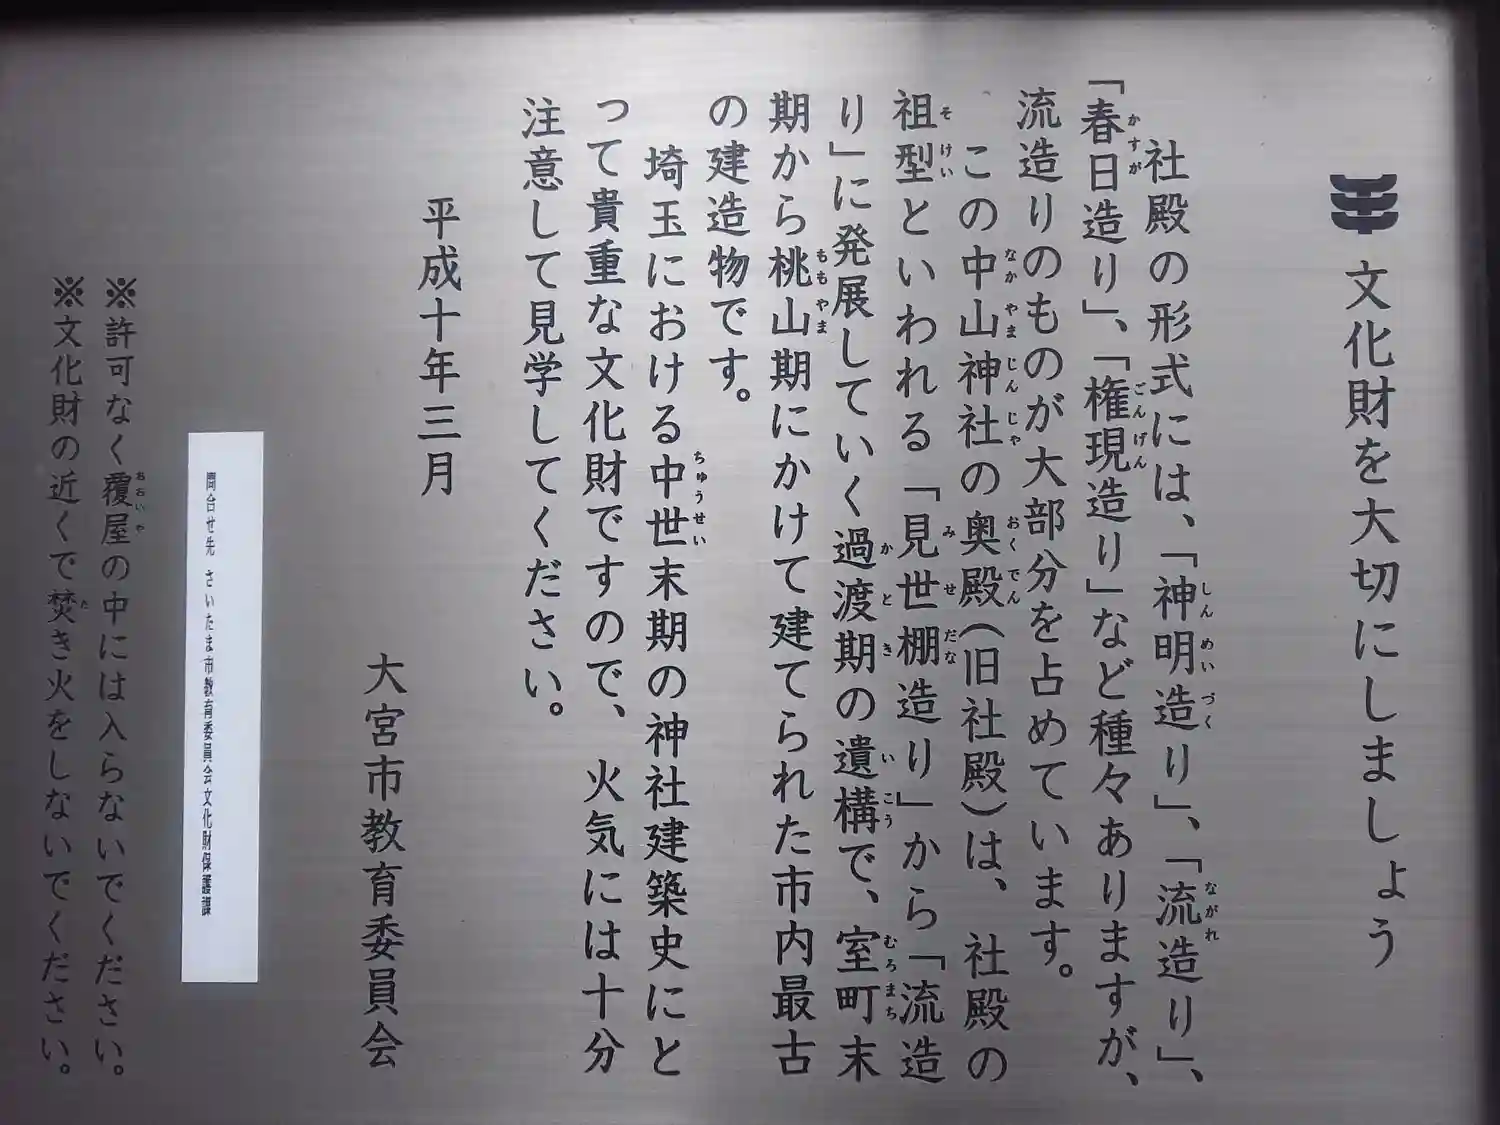 文化財を大切にしましょう
社殿の形式には、「神明造り」、「流造り」、
「春日造り」、「権現造り」など種々ありますが、
流造りのものが大部分を占めています。
この中山神社の奥殿(旧社殿)は、社殿の
祖型といわれる「見世棚造り」から「流造
り」に発展していく過渡期の遺構で、室町末
期から桃山期にかけて建てられた市内最古
の建造物です。
埼玉における中世末期の神社建築史にと
って貴重な文化財ですので、火気には十分
注意して見学してください。
平成十年三月
大宮市教育委員会
問合せ先 さいたま市教育委員会文化財保護課
※許可なく覆屋の中には入らないでください。
※文化財の近くで焚き火をしないでください。